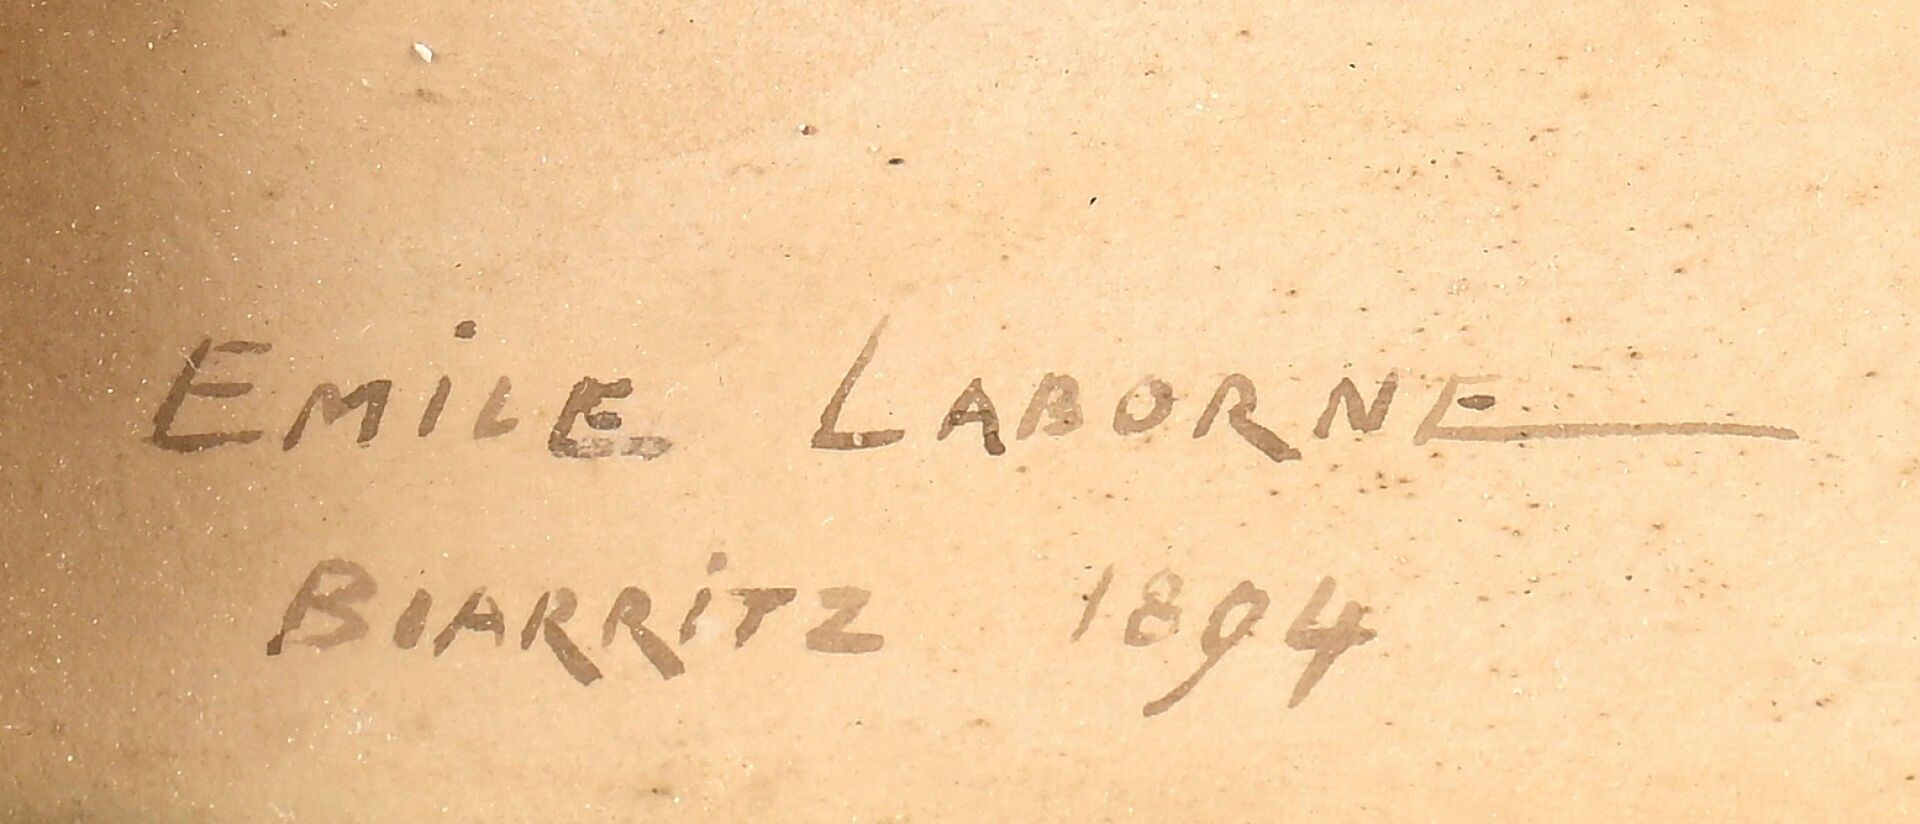 EMiLE LABORNE
BIARRiTZ 1894